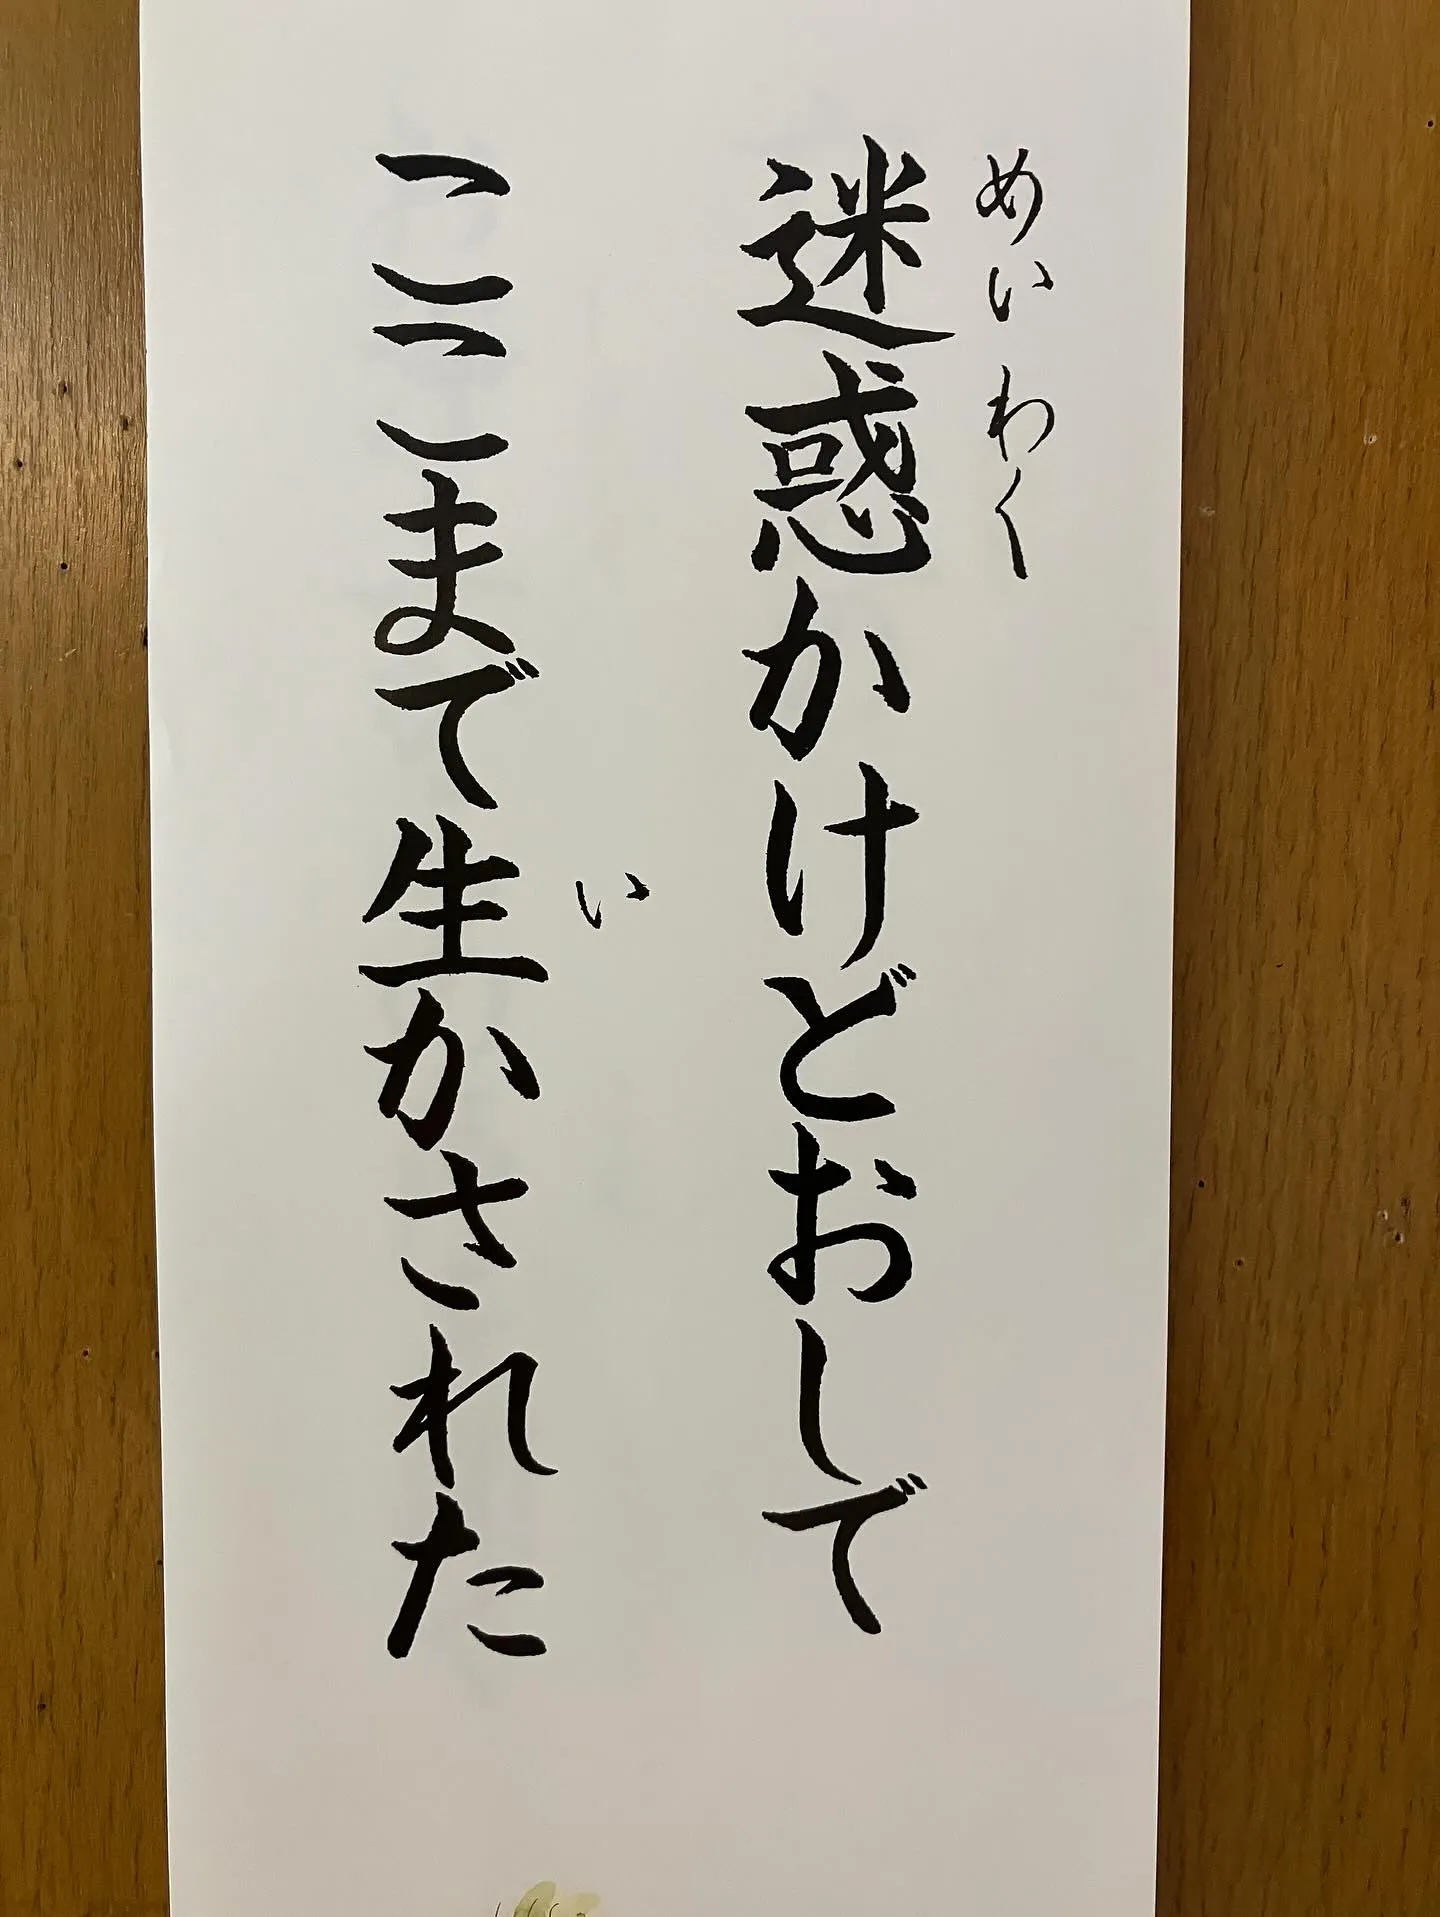 迷惑かけどおしで
めいわく
ここまで生かされた
い